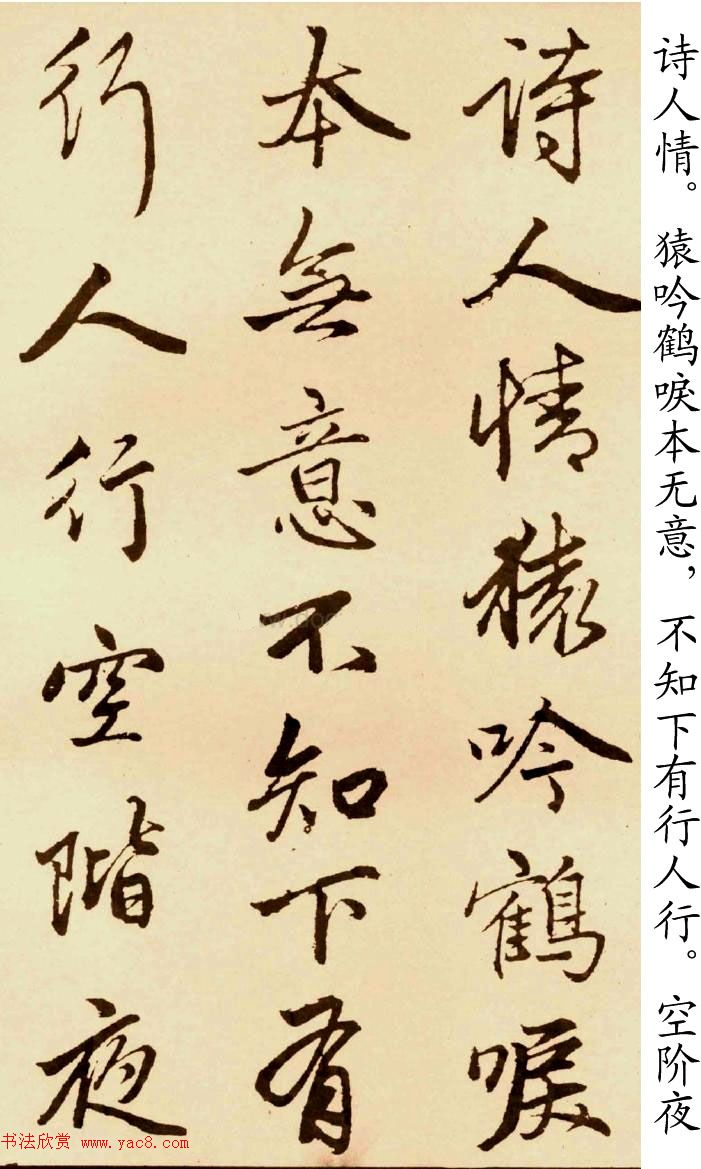 诗人情。猿吟鹤唳本无意，不知下有行人行。空阶夜
詩人情猿吟鶴唳
本無意不知下有
行人行空階夜
书法欣赏 www.yac8.com